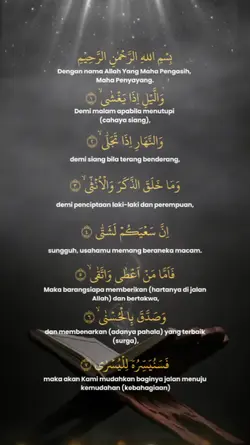 بِسْمِ اللهِ الرَّحْمٰنِ الرَّحِيْمِ
Dengan nama Allah Yang Maha Pengasih,
Maha Penyayang.
وَالَّيْلِ اِذَا يَغْشٰىۙ ١
Demi malam apabila menutupi
(cahaya siang),
وَالنَّهَارِ اِذَا تَجَلّٰىۙ ٢
demi siang bila terang benderang,
وَمَا خَلَقَ الذَّكَرَ وَالْاُنْثٰىۙ ٣
demi penciptaan laki-laki dan perempuan,
اِنَّ سَعْيَكُمْ لَشَتّٰىۗ ٤
sungguh, usahamu memang beraneka macam.
فَاَمَّا مَنْ اَعْطٰى وَاتَّقٰىۙ ٥
Maka barangsiapa memberikan (hartanya di jalan
Allah) dan bertakwa,
وَصَدَّقَ بِالْحُسْنٰىۙ ٦
dan membenarkan (adanya pahala) yang terbaik
(surga),
فَسَنُيَسِّرُهٗ لِلْيُسْرٰىۗ ٧
maka akan Kami mudahkan baginya jalan menuju
kemudahan (kebahagiaan)